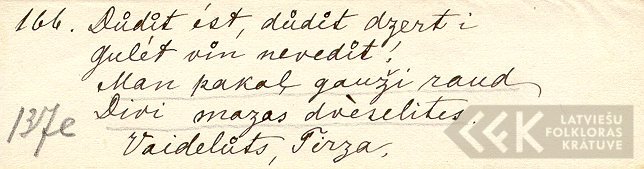 166. Důdit ést, důdit dzert i
gulét vin nevedit!
Man pakaļ gauži raud
Divi mazas dvèselites.
137e
Vaidelůts, Tirza.
LATVIEŠU
FOLKLORAS
KRĀTUVE